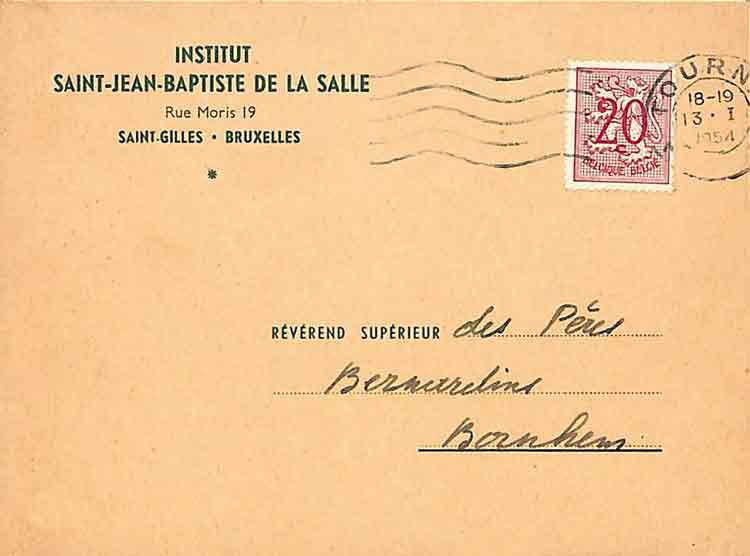 INSTITUT
SAINT-JEAN-BAPTISTE DE LA SALLE
Rue Moris 19
SAINT-GILLES • BRUXELLES
*
20 c
BELGIQUE BELGIE
FOURN
18-19
13 • I
1954
RÉVÉREND SUPÉRIEUR des Pères
Bernardins
Bornhem